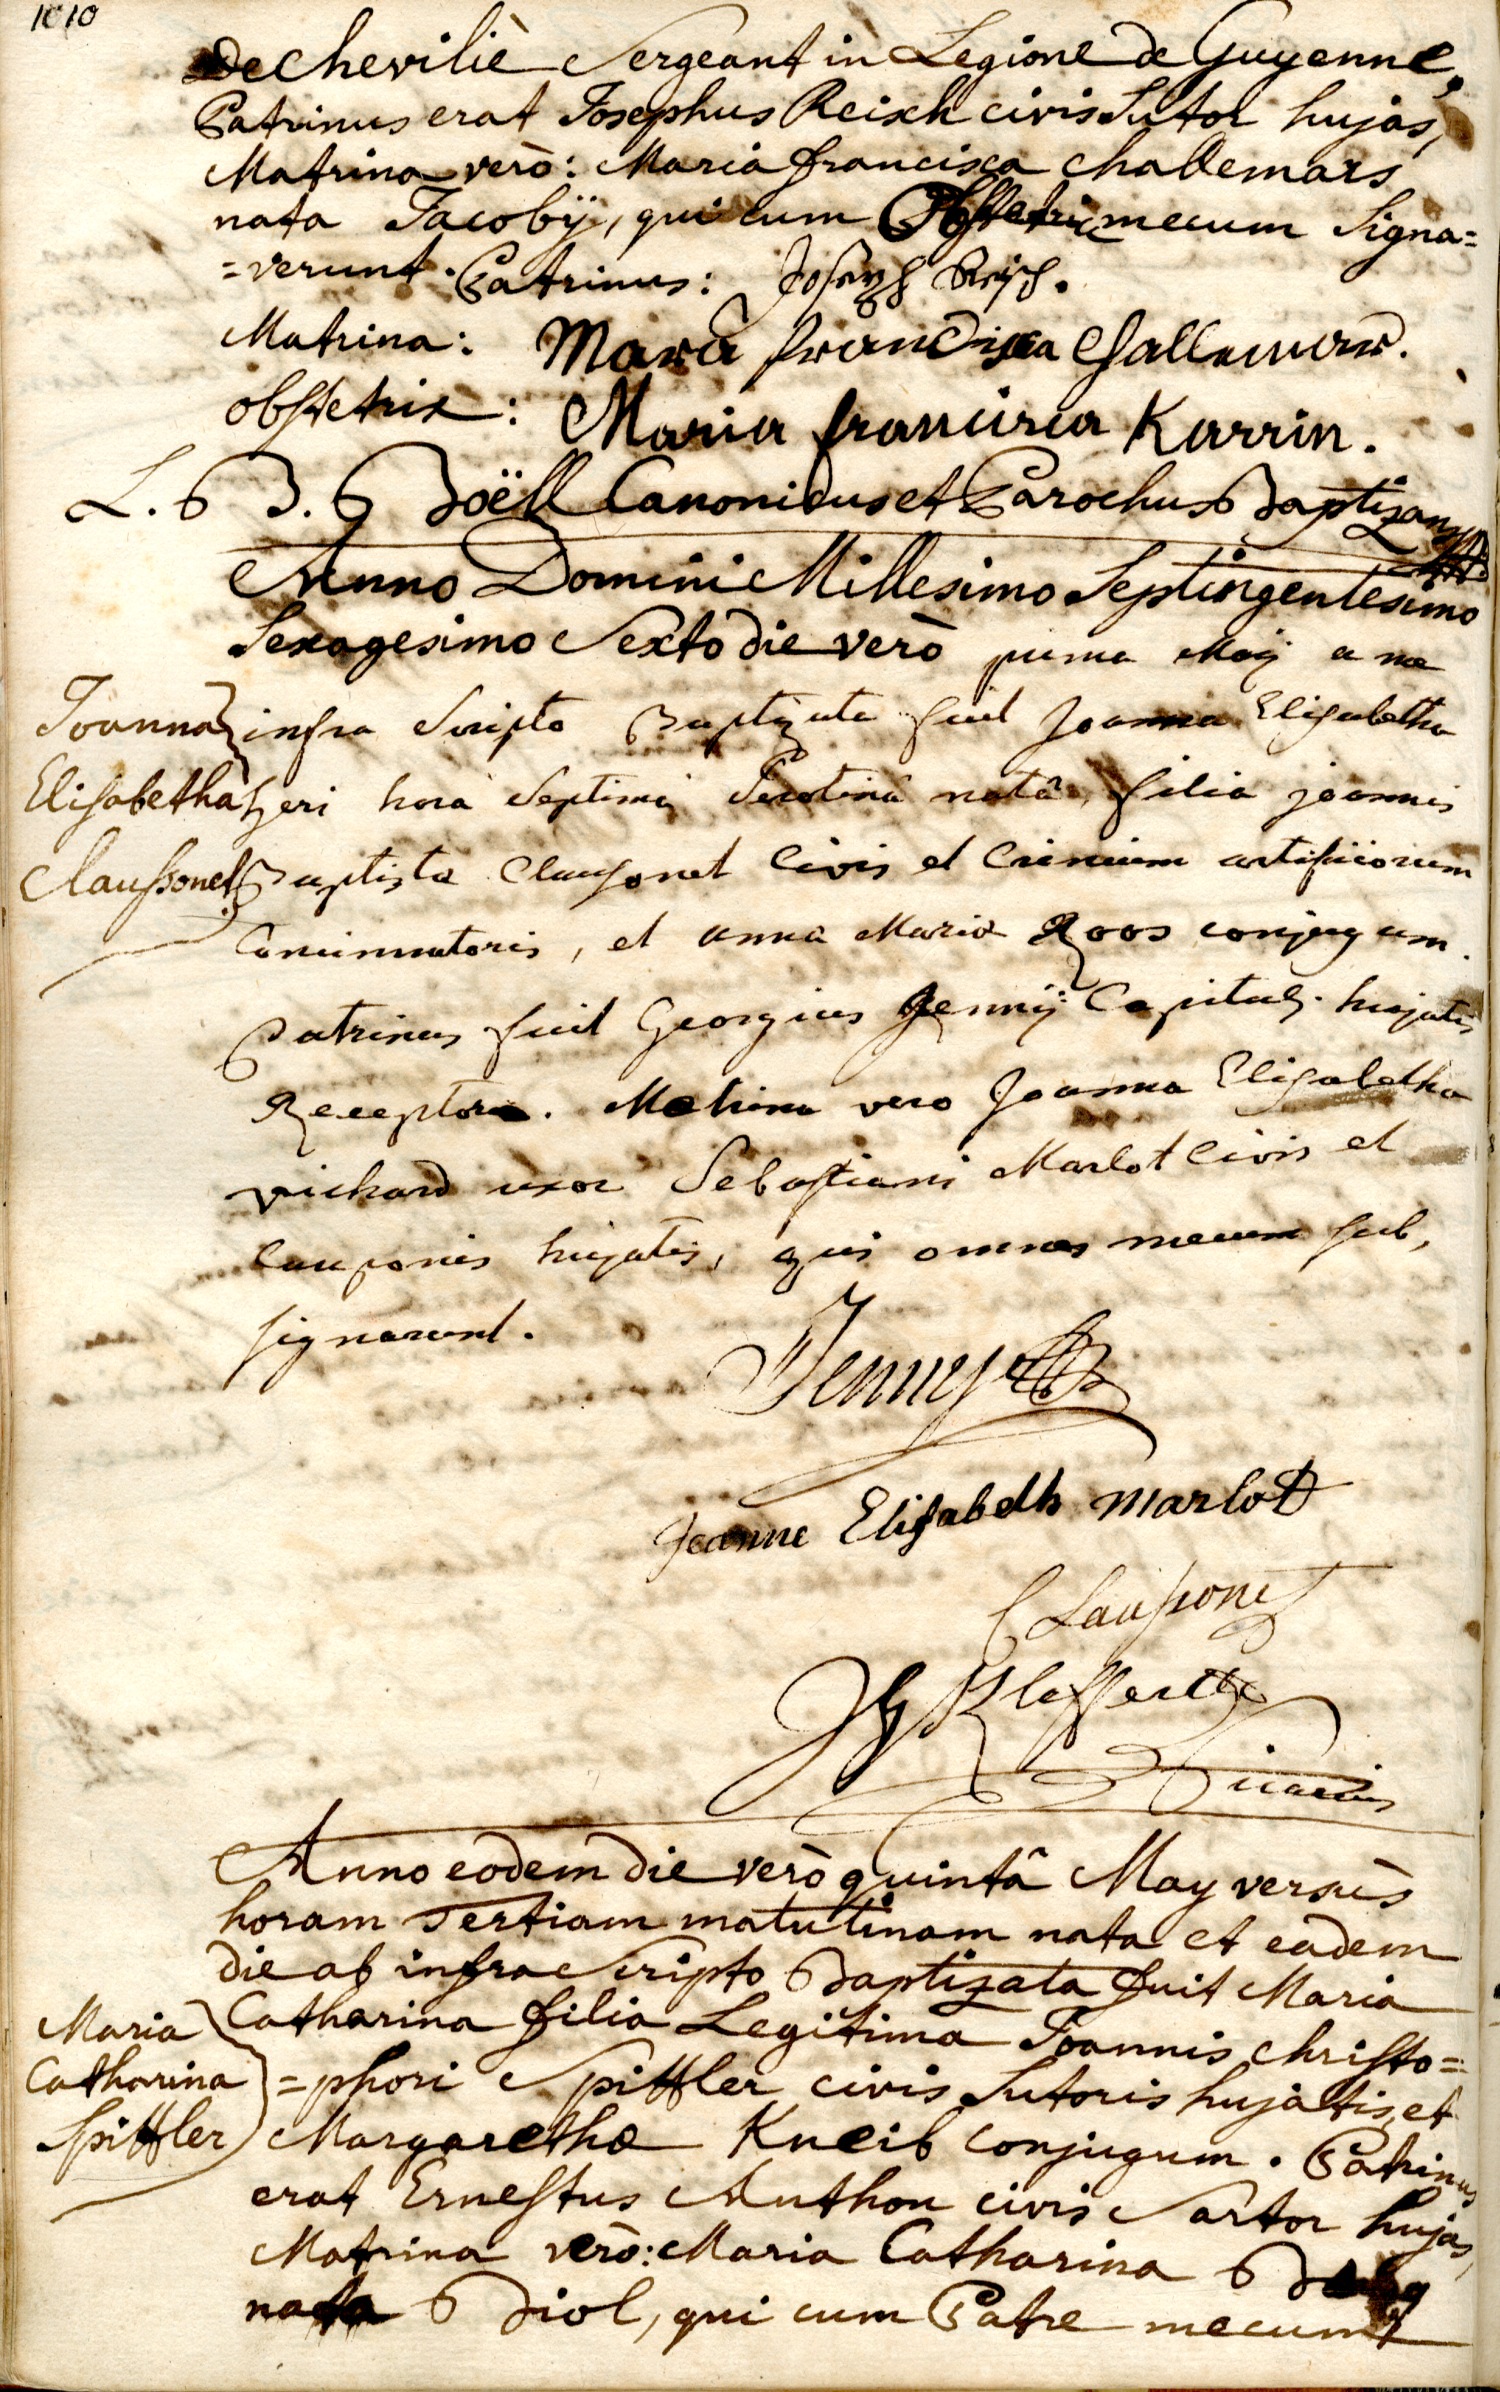 1010
De Chevilie Sergeant in Legione de Guyenne,
Patrinus erat Josephus Reixh civis Sutor hujas,
Matrina verò: Maria francisca Challemars
nata Jacobÿ, qui cum Obstetrix mecum Signa=
=verunt. Patrinus: Joseph Reisch.
Matrina: Maria francisca Challemar.
obstetrix: Maria francisca Karrin.
L. B. Boëll Canonicus et Parochus Baptizans
Anno Domini Millesimo Septingentesimo
Sexagesimo Sexto die verò prima Maÿ a me
Joanna infra Scripto Baptizata fuit Joanna Elisabetha
Elisabetha heri hora Septima Serotinâ nata, filia joannis
Claussonet Baptista Clausonet Civis et Crinium artificiorum
Concinnatoris, et anna Maria Roos conjugum.
Patrinus fuit Georgius Jennÿ Capituli hujatis
Receptor. Matrina vero Joanna Elisabetha
Richard uxor Sebastiani Marlot Civis et
Cauponis hujatis, qui omnes mecum sub,
signarunt.
Jenny
Jeanne Elisabeth Marlot
Claussonet
Vicarius
Anno eodem die verò quintâ May versùs
horam Tertiam matutinam nata et eadem
die ab infra Scripto Baptizata fuit Maria
Maria Catharina filia Legitima Joannis Christo=
Catharina =phori Spittler civis Sutoris hujatis, et
Spittler Margarethæ Kneib conjugum. Patrinus
erat Ernestus Anthon civis Sartor hujas,
Matrina verò: Maria Catharina
nata Diol, qui cum Patre mecum